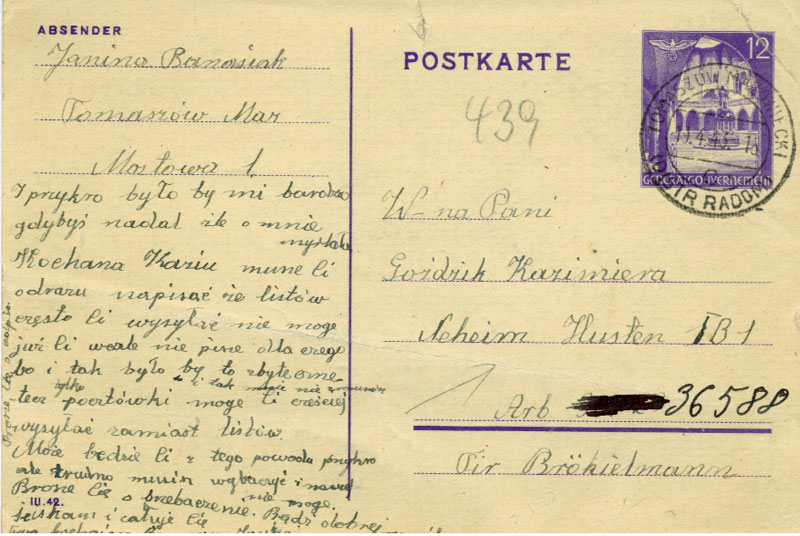 ABSENDER
Janina Banasiak
Tomaszów Maz
Mostowa 1
I przykro było by mi bardzo
gdybyś nadal źle o mnie
myślała
Kochana Kaziu musze Ci
odrazu napisać że listów
często Ci wysyłać nie moge
już Ci wcale nie pisze dla czego
bo i tak było by to zbyteczne
też tylko pocztówki moge Ci cześciej
to i tak
wysyłać zamiast listów.
Może będzie Ci z tego powodu przykro
ale trudno musisz wybaczyć i nawet
Prosze Cię o przebaczenie. nie moge.
III.42.
ściskam i całuje Cię. Bądź dobrej
POSTKARTE
439
12
TOMASZÓW MAZOWIECKI
DISTR RADOM
GENERALGOUVERNEMENT
W-na Pani
Goździk Kazimiera
Neheim Husten IB1
Arb 36588
Fir Brökielmann